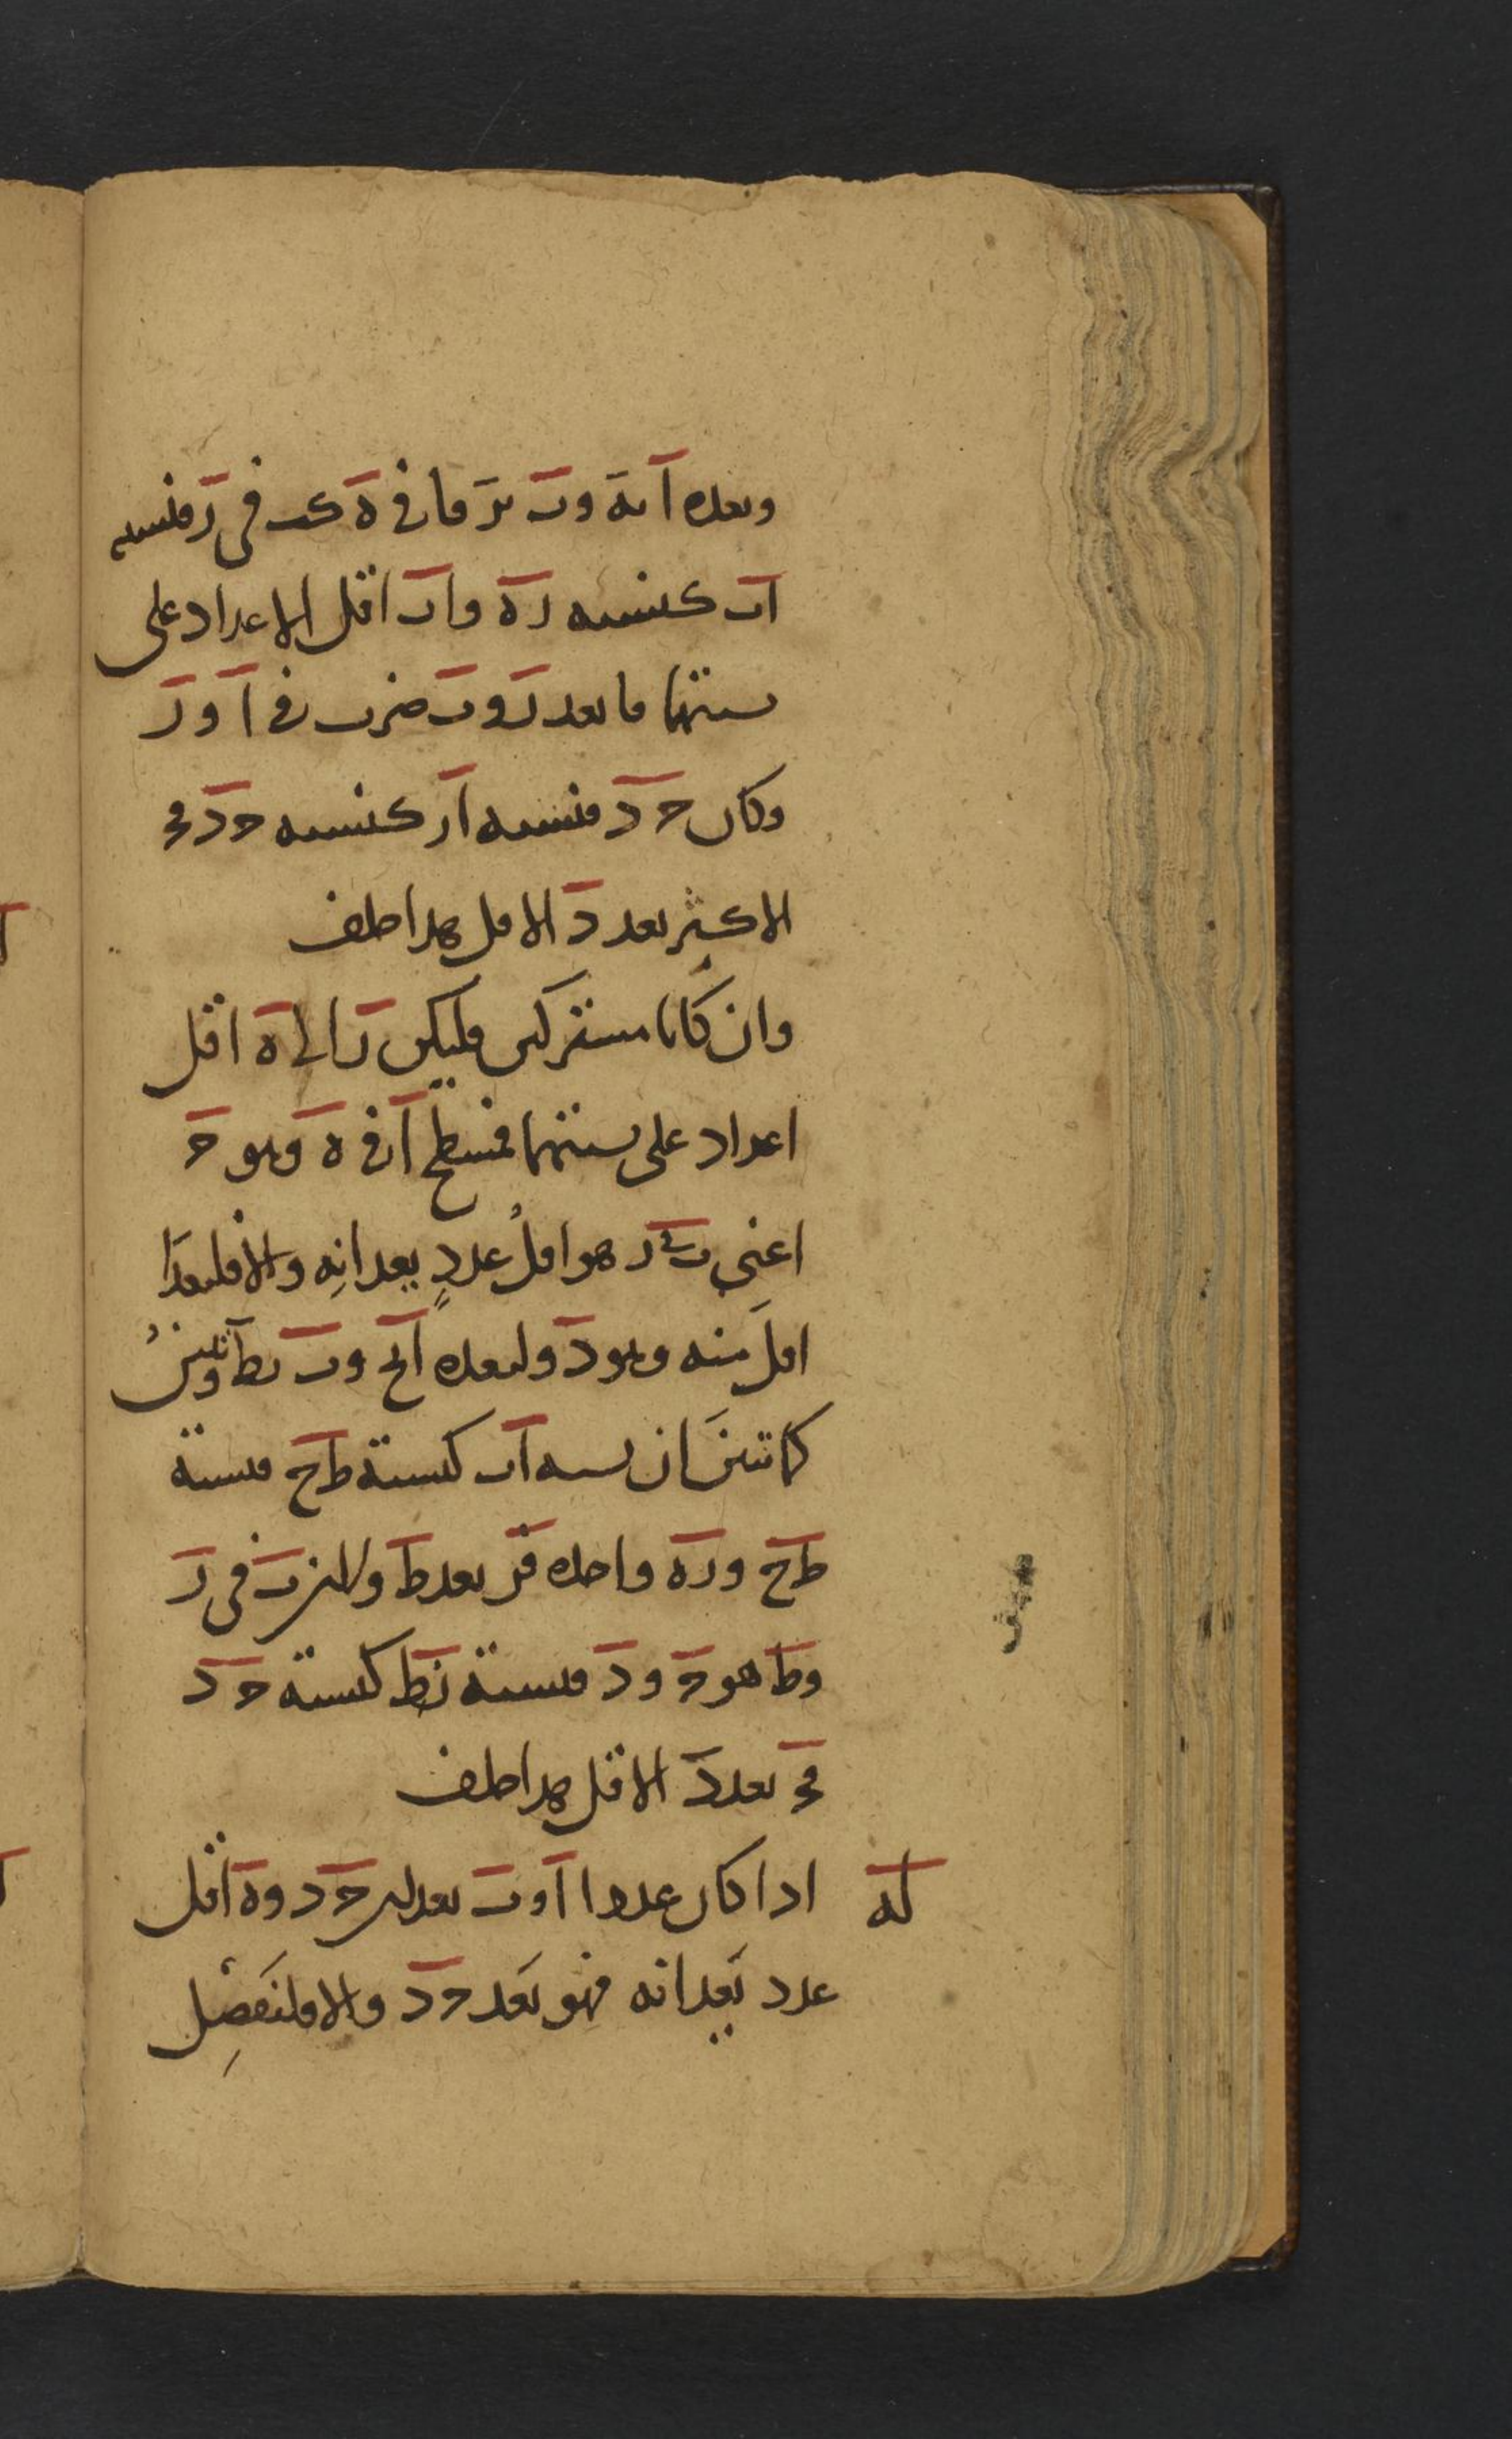 ويعده آ بة وب بز فا في ه كب في ز فنسبه
اب كنسبه زه واب اقل الاعداد على
نسبتهما فا يعد ز وب ضرب في آ و ز
وكان ح د فنسبه از كنسبه ح د فح
الاكثر يعد د الاقل هذا خلف
وان كانا مشتركين فليكن ز الى ه اقل
اعداد على نسبتهما فمسطح آ في ه وهو ح
اعنى ب في ز هو اقلُ عددٍ يعدانِه والا فليعدا
اقلَ منه وهو د وليعده آ بح وب بط وتبين
كما تبيَّن ان نسبه اب كنسبة ط ح فنسبة
ط ح وزه واحده فز يعد ط ولان ب في ز
وط هو ح ود فنسبة زط كنسبة ح د
فح يعد د الاقل هذا خلف
له اذا كان عددا آ وب يعدان ح د وه اقل
عدد يَعدانه فهو يَعد ح د والا فلنَفصِل